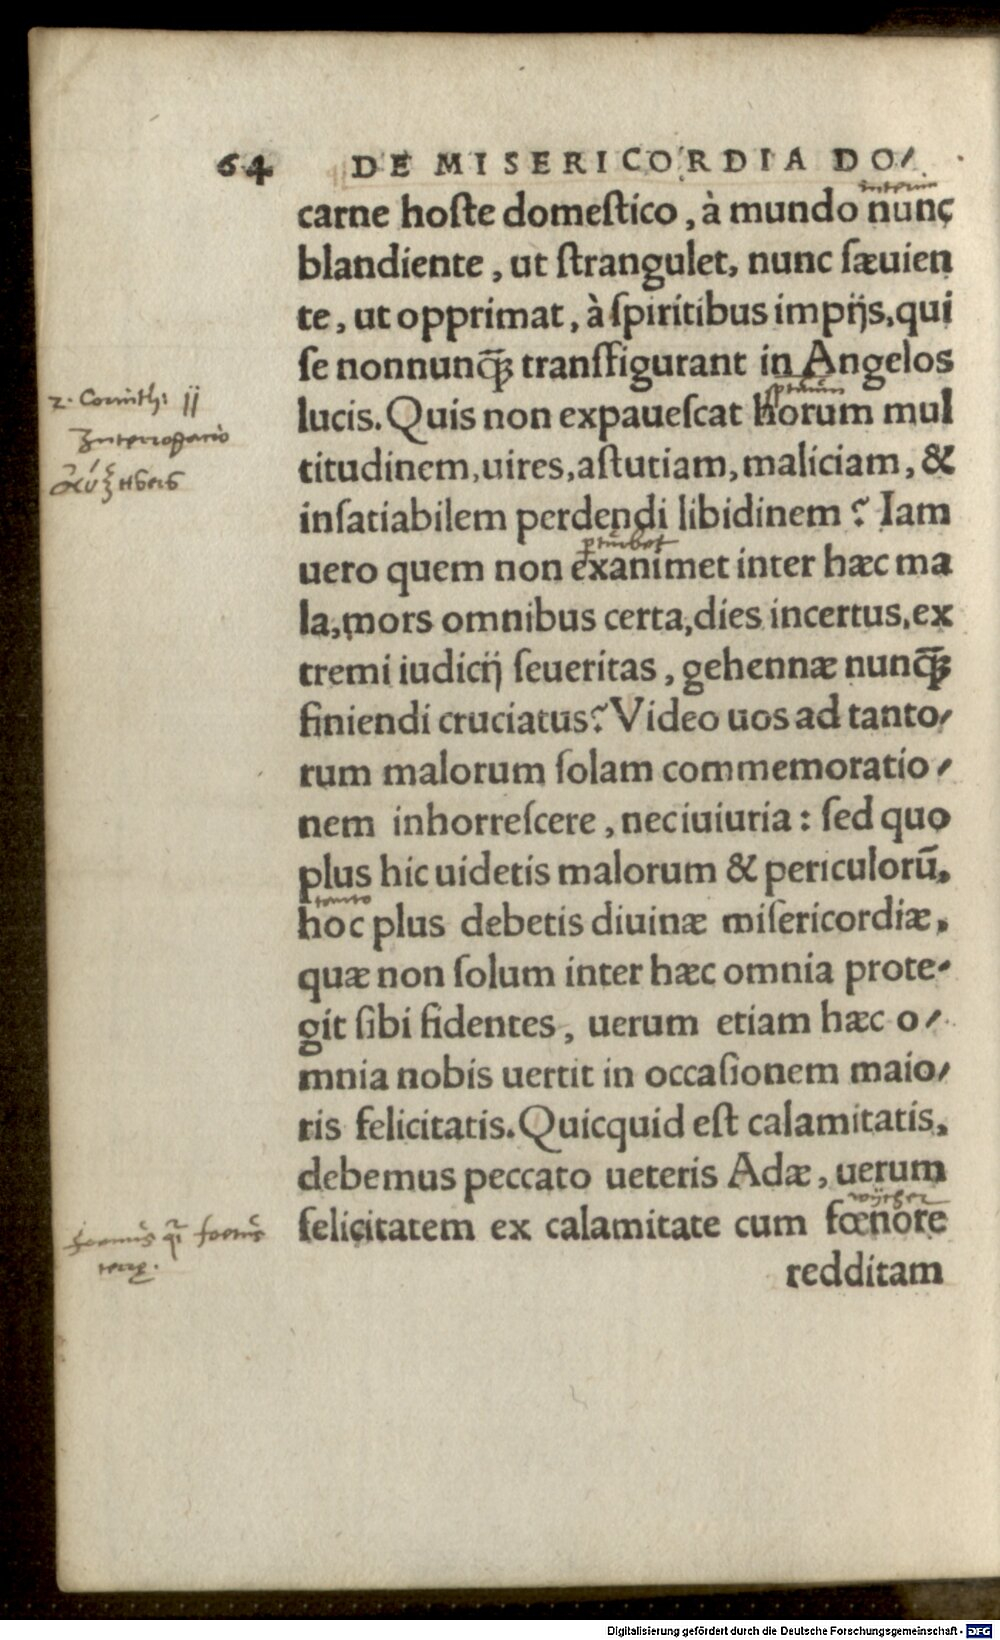 64 DE MISERICORDIA DO⸗
interim
carne hoſte domeſtico, à mundo nunc
blandiente, ut ſtrangulet, nunc ſæuien
te, ut opprimat, à ſpiritibus impijs, qui
ſe nonnunq̃ꝫ transfigurant in Angelos
2. Corinth: 11
lucis. Quis non expaueſcat horum mul
Interrogatio
titudinem, uires, aſtutiam, maliciam, &
inſatiabilem perdendi libidinem? Iam
uero quem non exanimet inter hæc ma
la, mors omnibus certa, dies incertus, ex
tremi iudicij ſeueritas, gehennæ nunq̃ꝫ
finiendi cruciatus? Video uos ad tanto⸗
rum malorum ſolam commemoratio⸗
nem inhorreſcere, nec iuiuria: ſed quo
plus hic uidetis malorum & periculorũ,
tanto
hoc plus debetis diuinæ miſericordiæ,
quæ non ſolum inter hæc omnia prote⸗
git ſibi fidentes, uerum etiam hæc o⸗
mnia nobis uertit in occaſionem maio⸗
ris felicitatis. Quicquid eſt calamitatis,
debemus peccato ueteris Adæ, uerum
felicitatem ex calamitate cum fœnore
redditam
Digitalisierung gefördert durch die Deutsche Forschungsgemeinschaft - DFG